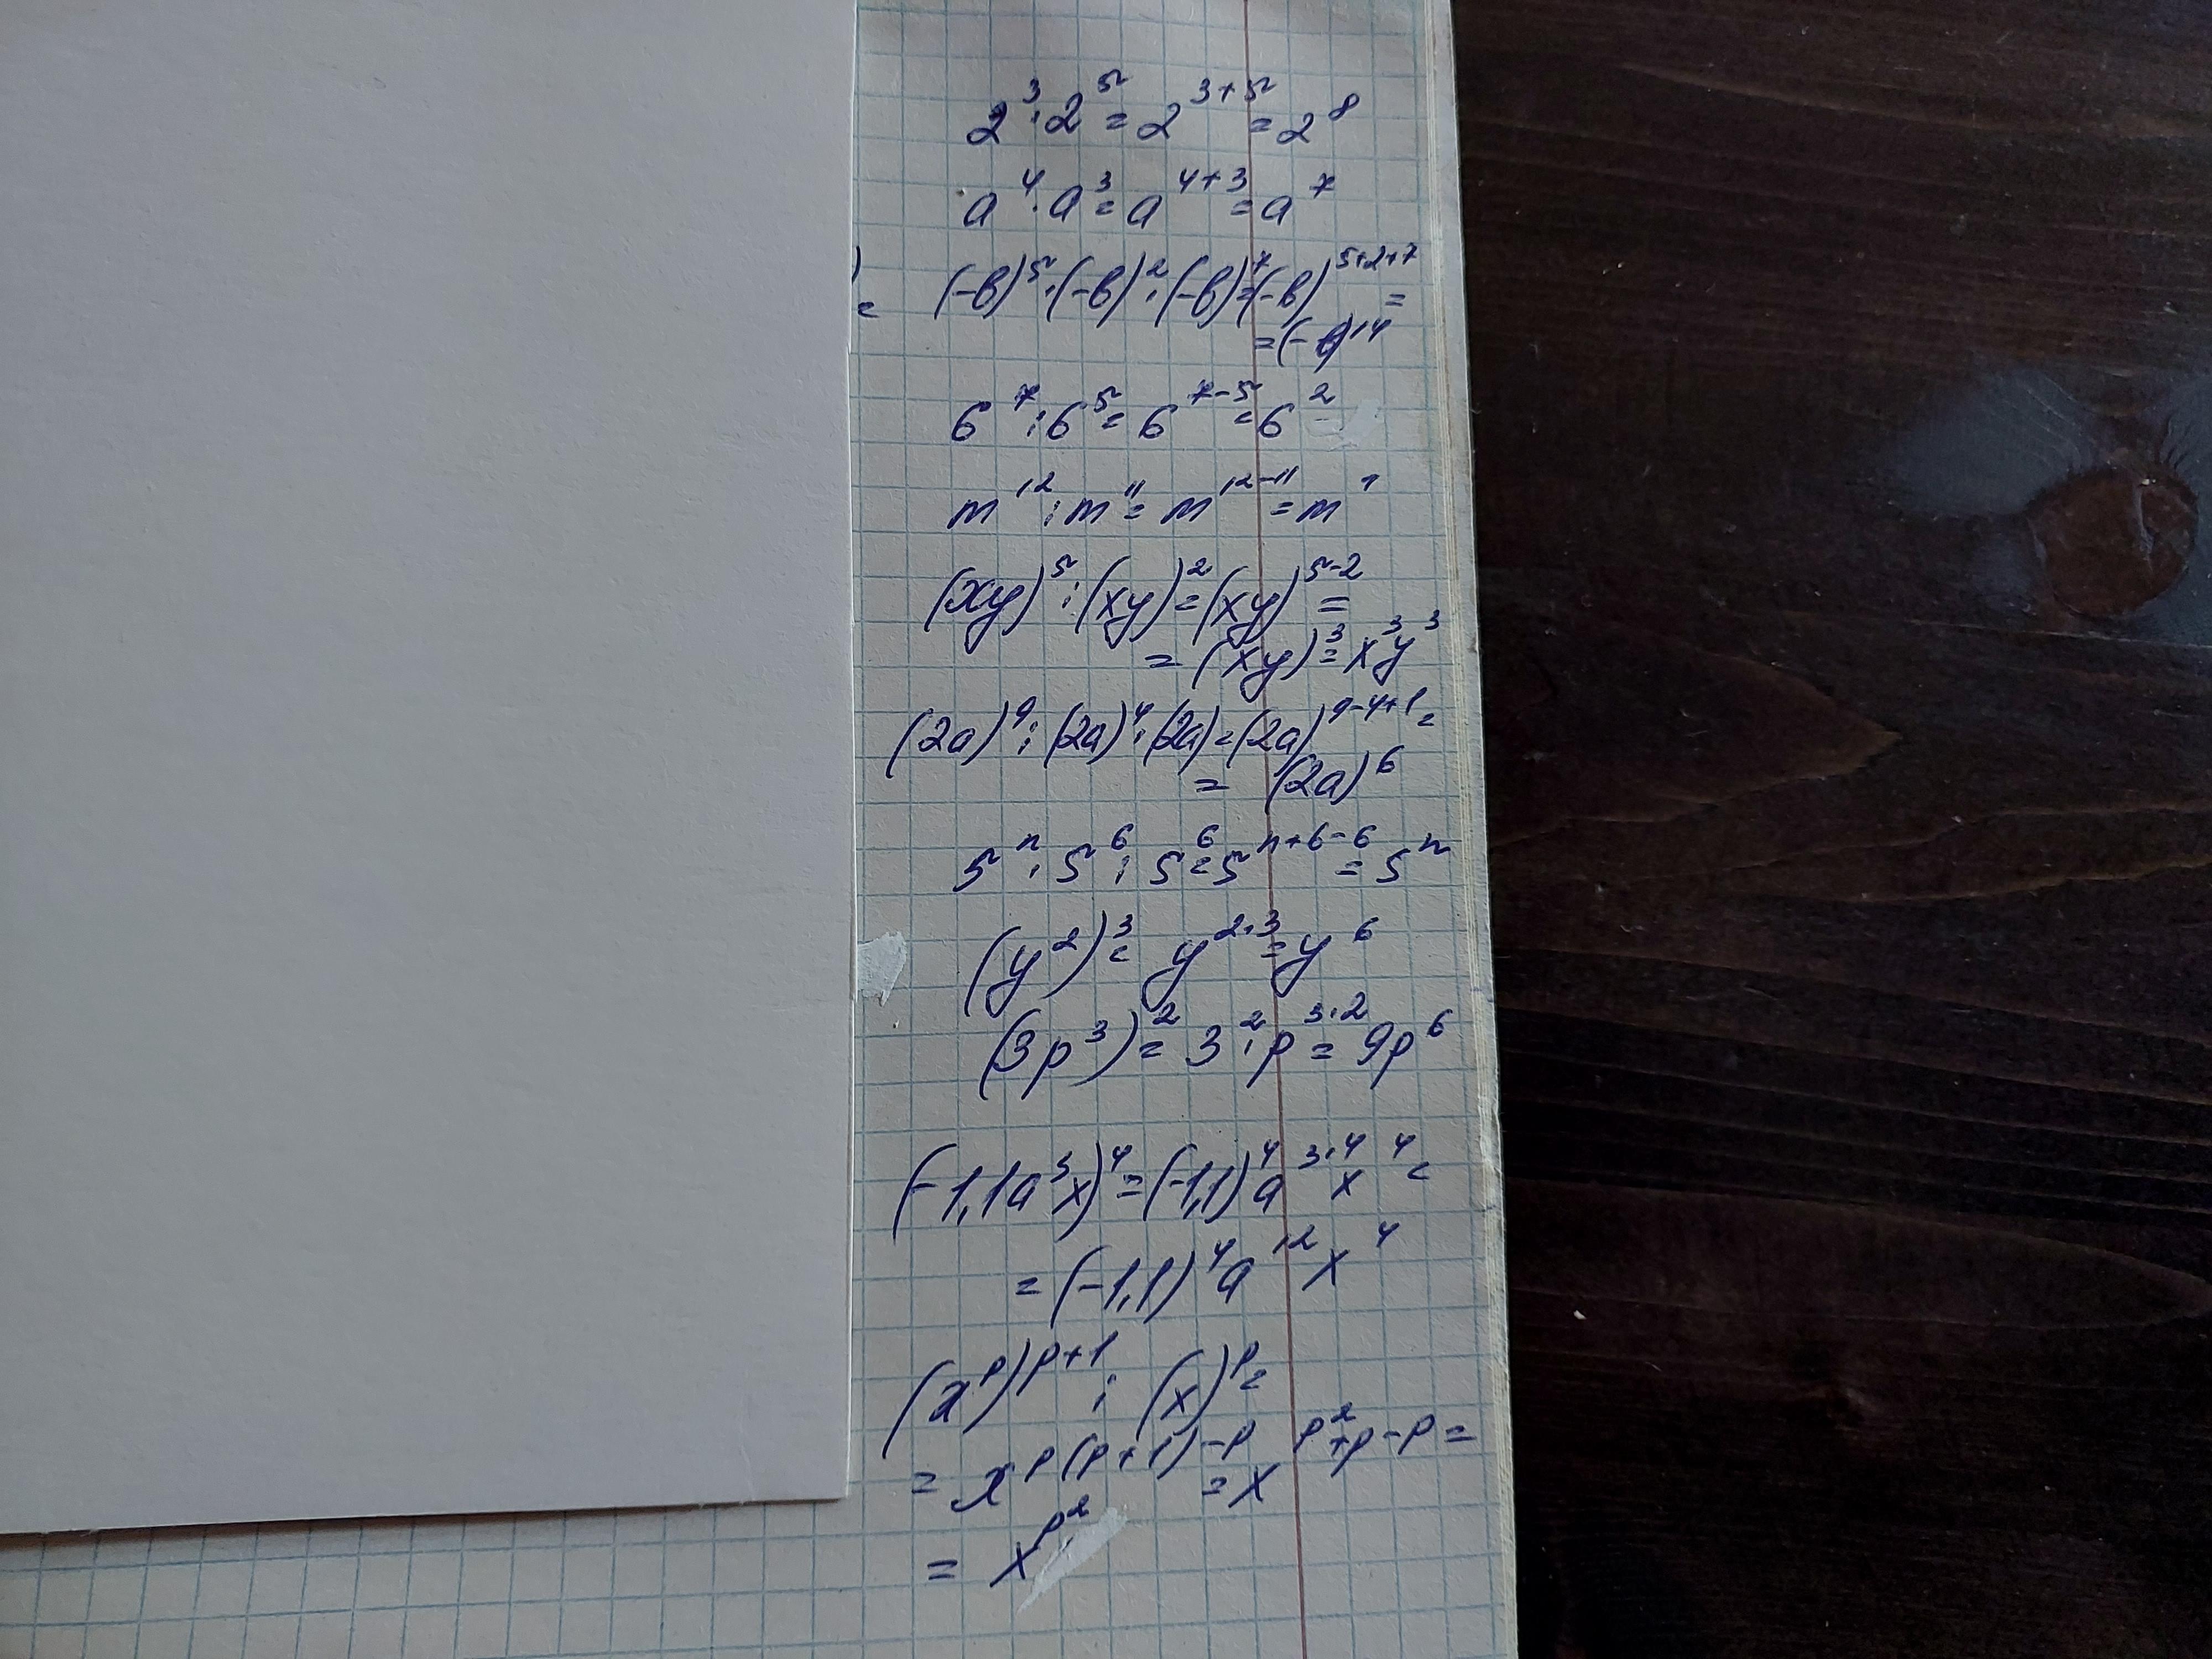 2³·2⁵=2³⁺⁵=2⁸
a⁴·a³=a⁴⁺³=a⁷
)= (-b)⁵·(-b)²·(-b)⁷=(-b)⁵⁺²⁺⁷=
=(-b)¹⁴
6⁷:6⁵=6⁷⁻⁵=6²
m¹²:m¹¹=m¹²⁻¹¹=m¹
(xy)⁵:(xy)²=(xy)⁵⁻²=
=(xy)³=x³y³
(2a)⁹:(2a)⁴·(2a)=(2a)⁹⁻⁴⁺¹=
= (2a)⁶
5ⁿ·5⁶:5⁶=5ⁿ⁺⁶⁻⁶=5ⁿ
(y²)³=y^{2·3}=y⁶
(3p³)²=3²·p^{3·2}=9p⁶
(-1,1a³x)⁴=(-1,1)⁴a^{3·4}x⁴=
=(-1,1)⁴a¹²x⁴
(x^p)^{p+1}:(x)^p=
=x^{p(p+1)-p}=x^{p²+p-p}=
=x^{p²}